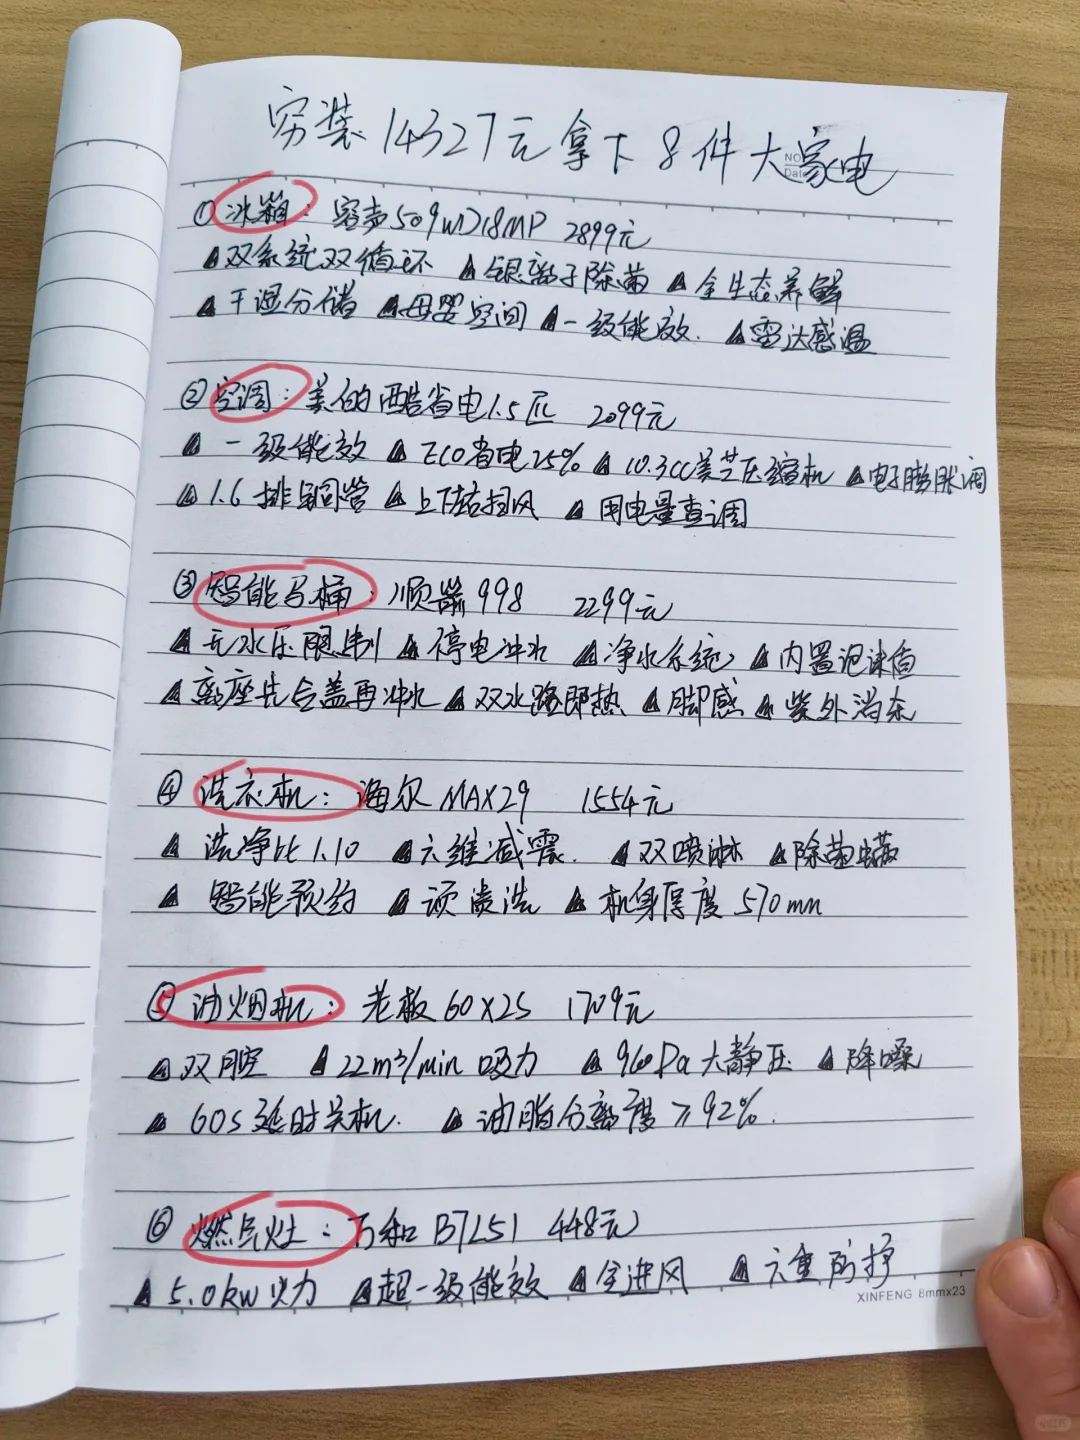 穷装14327元拿下8件大家电
NO
Date
①冰箱：容声509WD18MP 2899元
▲双系统双循环 ▲银离子除菌 ▲全生态养鲜
▲干湿分储 ▲母婴空间 ▲一级能效. ▲雷达感温
②空调：美的酷省电1.5匹 2099元
▲一级能效 ▲ECO省电25% ▲10.3CC美芝压缩机 ▲电子膨胀阀
▲1.6排铜管 ▲上下左右扫风 ▲用电量查调
③智能马桶：顺箭998 2299元
▲无水压限制 ▲停电冲水 ▲净水系统 ▲内置泡沫盾
▲离座先合盖再冲水 ▲双水路即热 ▲脚感 ▲紫外消杀
④洗衣机：海尔MAX29 1554元
▲洗净比1.10 ▲六维减震. ▲双喷淋 ▲除菌螨
▲智能预约 ▲预渍洗 ▲机身厚度570mm
⑤油烟机：老板60X2S 1709元
▲双腔 ▲22m³/min吸力 ▲960Pa大静压 ▲降噪
▲60S延时关机. ▲油脂分离度≥92%.
⑥燃气灶：万和B7L51 448元
▲5.0kw火力 ▲超一级能效 ▲全进风 ▲六重防护
XINFENG 8mmx23